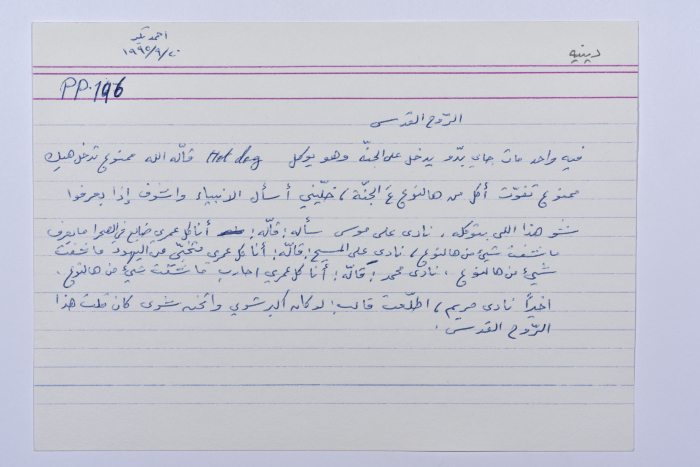 احمد بكير
١٩٩٢/٩/٢٠
دينيه
PP.196
الرّوح القدس
فيه واحد مات جاي بدّو يدخل على الجنّة وهو يوكل Hot dog قالّه الله ممنوع تدخل هيك
ممنوع تفوّت أكل من هالنوع عَ الجنّة، خلّيني أسأل الانبياء واشوف إذا بعرفوا
شو هذا اللي بتوكله. نادى على موسى سأله: قالّه: أنا كل عمري ضايع في الصحرا ما بعرف
ما شفت شيئ من هالنوع، نادى على المسيح: قالّه: أنا كل عمري متخبّي من اليهود ما شفت
شيئ من هالنوع. نادى محمد: قالّه: أنا كل عمري احارب ما شفت شيئ من هالنوع.
اخيراً نادى مريم، اطلّعت قالت: لو كان أكبر شوي واتخن شوي كان قلت هذا
الرّوح القدس.